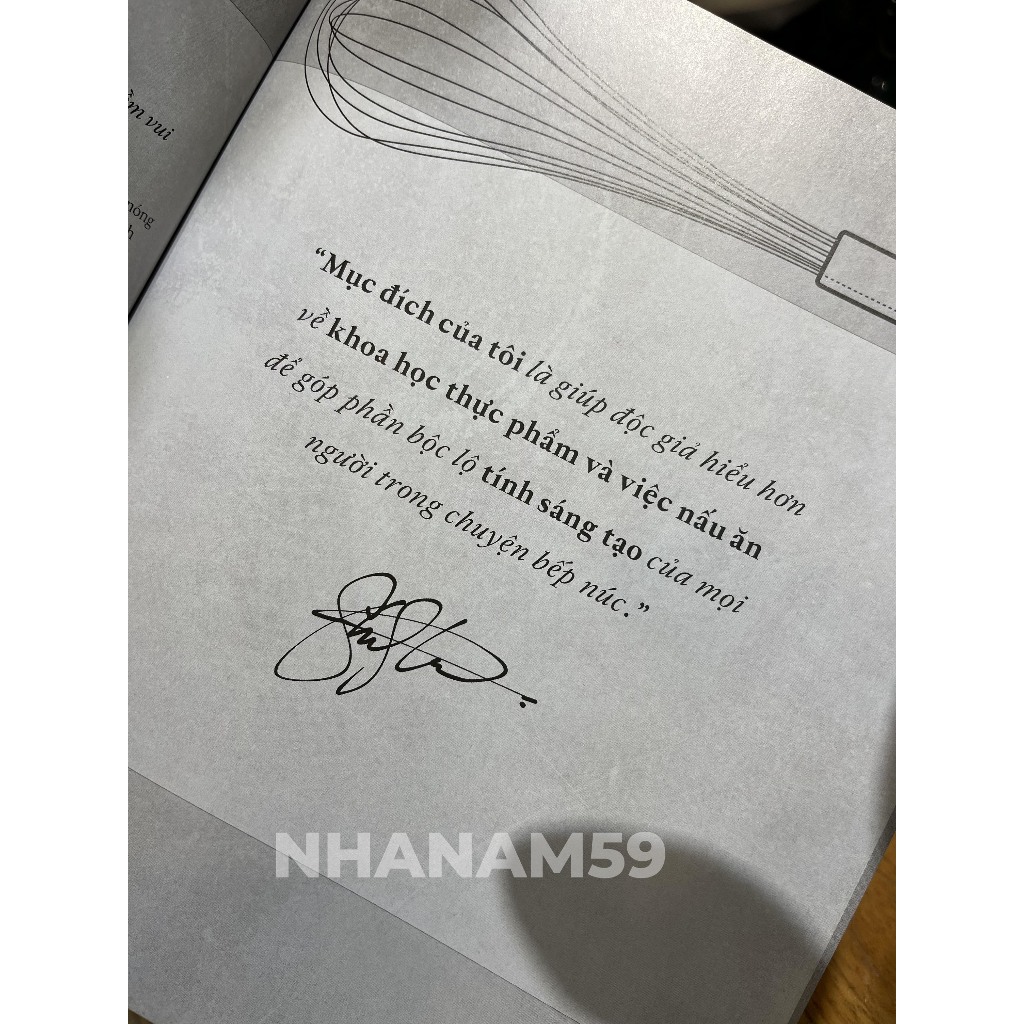 ềm vui
nóng
h
“Mục đích của tôi là giúp độc giả hiểu hơn
về khoa học thực phẩm và việc nấu ăn
để góp phần bộc lộ tính sáng tạo của mọi
người trong chuyện bếp núc.”
NHANAM59